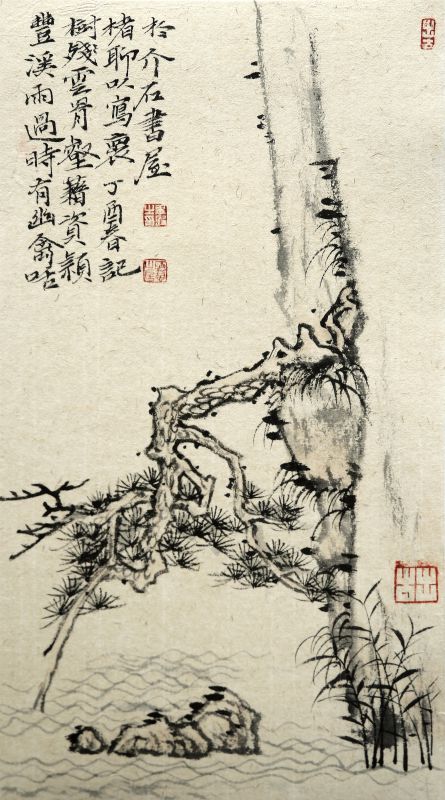 豐溪雨過時有幽禽咕
樹殘雲骨壑藉資穎
楮聊以寫衷丁酉春記
於介石書屋